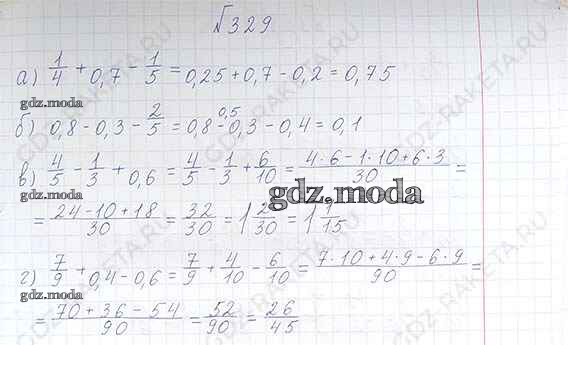 №329
а) 1/4 + 0,7 - 1/5 = 0,25 + 0,7 - 0,2 = 0,75
gdz.moda
0,5
б) 0,8 - 0,3 - 2/5 = 0,8 - 0,3 - 0,4 = 0,1
в) 4/5 - 1/3 + 0,6 = 4/5 - 1/3 + 6/10 = 4·6-1·10+6·3/30 =
gdz.moda
gdz.moda
= 24-10+18/30 = 32/30 = 1 2/30 = 1 1/15
г) 7/9 + 0,4 - 0,6 = 7/9 + 4/10 - 6/10 = 7·10+4·9-6·9/90 =
gdz.moda
= 70+36-54/90 = 52/90 = 26/45
GDZ-RAKETA.RU